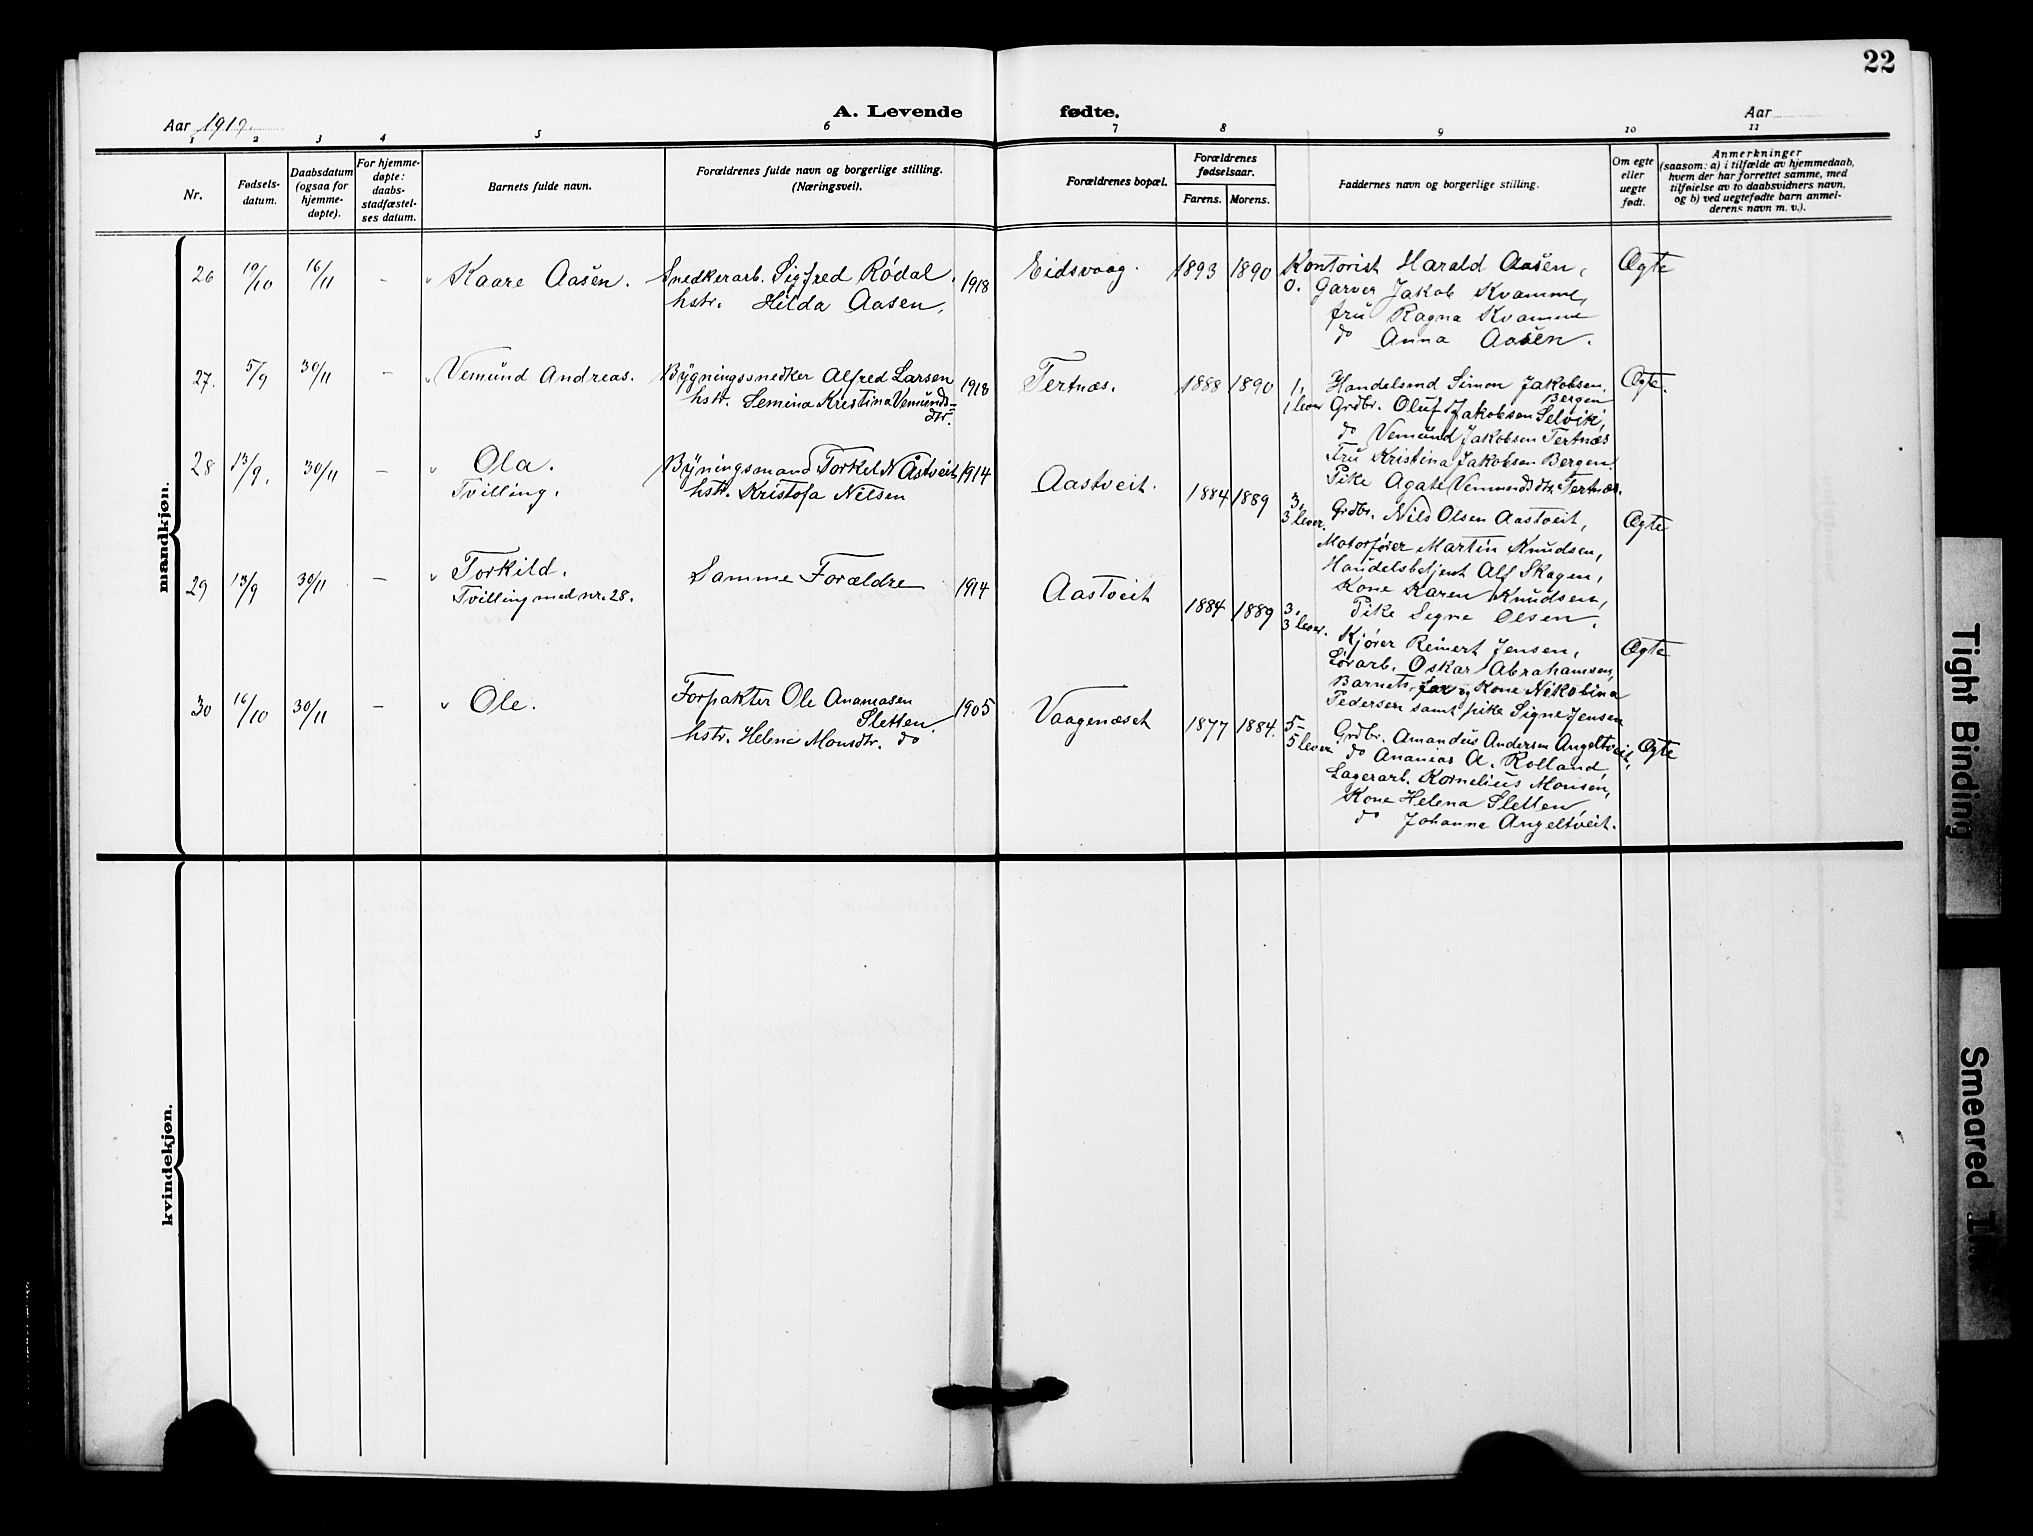 22
A. Levende fødte.
Aar 1919. Aar
1 2 3 4 5 6 7 8 9 10 11
Nr.
Fødsels-
datum.
Daabsdatum
(ogsaa for
hjemme-
døpte).
For hjemme-
døpte:
daabs-
stadfæstel-
ses datum.
Barnets fulde navn.
Forældrenes fulde navn og borgerlige stilling.
(Næringsvei).
Forældrenes bopæl.
Forældrenes
fødselsaar.
Farens. Morens.
Faddernes navn og borgerlige stilling.
Om egte
eller
uegte
født.
Anmerkninger
(saasom: a) i tilfælde av hjemmedaab,
hvem der har forrettet samme, med
tilføielse av to daabsvidners navn,
og b) ved uegtefødte barn anmel-
derens navn m. v.).
mandkjøn.
26 19/10 16/11 - " Kaare Aasen. Snedkerarb. Sigfred Rødal, 1918 Eidsvaag. 1893 1890 Kontorist Harald Aasen, Ægte
hstr. Hilda Aasen, 0. Garver Jakob Kvamme,
fru Ragna Kvamme
do Anna Aasen.
27. 5/9 30/11 - " Vemund Andreas. Bygningssnedker Alfred Larsen 1918 Tertnæs. 1888 1890 1, Handelsmd Simon Jakobsen, Ægte.
Bergen
hstr. Semina Kristina Vemunds=
dtr.
1 lever Grdbr. Oluf Jakobsen Selvik,
do Vemund Jakobsen Tertnæs
Fru Kristina Jakobsen Bergen.
Pike Agate Vemundsdtr. Tertnæs.
28 13/9. 30/11 - " Ola. Bygningsmand Torkil N Åstveit 1914 Aastveit. 1884 1889 3, Grdbr. Nils Olsen Aastveit, Ægte
Tvilling. hstr. Kristofa Nilsen 3 lever.
Motorfører Martin Knudsen,
Handelsbetjent Alf Skagen,
Kone Karen Knudsen,
Pike Signe Olsen.
29 13/9 30/11 - " Torkild. Samme Forældre 1914 Aastveit 1884 1889 3, Kjører Reinert Jensen, Ægte
Tvilling med nr. 28. 3 lever.
Lørarb. Oskar Abrahamsen,
Barnets far og Kone Nikobina
Pedersen samt pike Signe Jensen
30 16/10 30/11 - " Ole. Forpakter Ole Ananiasen 1905 Vaagenæset 1877 1884. 5- Grdbr. Amandus Andersen Angeltveit, Ægte
Sletten
hstr. Helena Monsdtr. do 5 lever
do Ananias A. Rolland
Lagerarb. Kornelius Monsen,
Kone Helena Sletten,
do Johanna Angeltveit.
kvindekjøn.
Tight Binding
Smeared